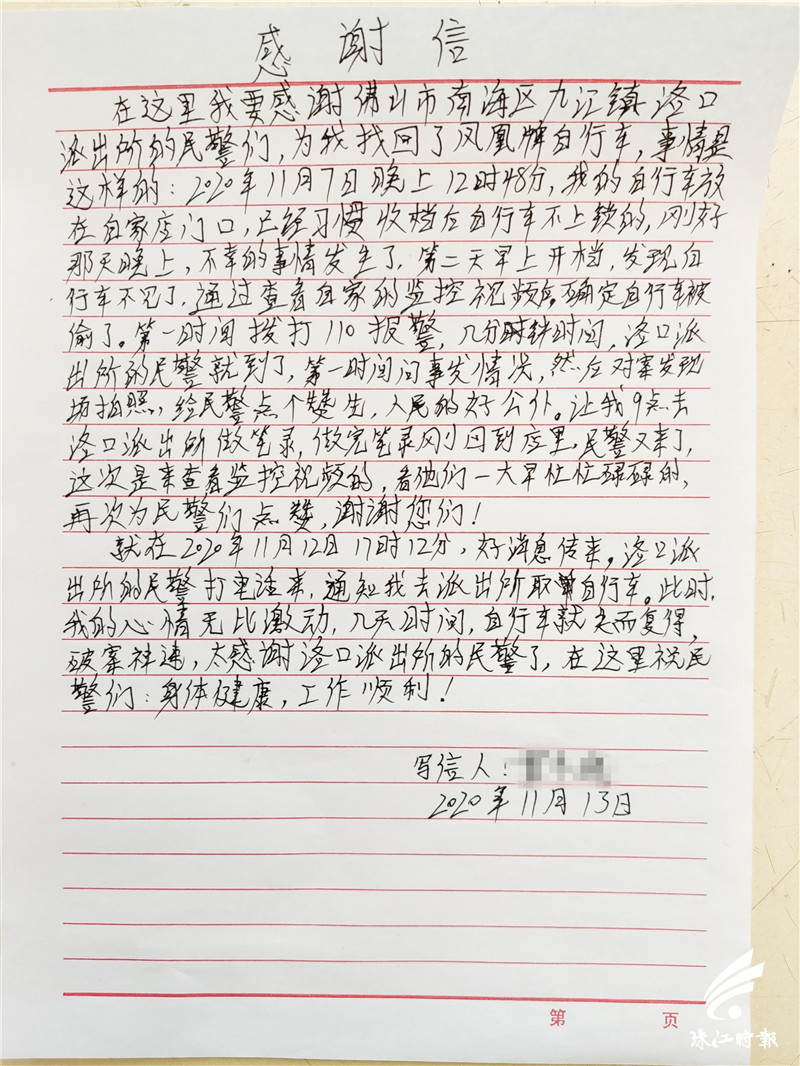 感谢信
在这里我要感谢佛山市南海区九江镇洛口
派出所的民警们，为我找回了凤凰牌自行车，事情是
这样的：2020年11月7日晚上12时48分，我的自行车放
在自家店门口，已经习惯收档后自行车不上锁的，刚好
那天晚上，不幸的事情发生了，第二天早上开档，发现自
行车不见了，通过查看自家的监控视频后确定自行车被
偷了。第一时间拨打110报警，几分钟时间，洛口派
出所的民警就到了，第一时间问事发情况，然后对案发现
场拍照，给民警点个赞先，人民的好公仆。让我9点去
洛口派出所做笔录，做完笔录刚回到店里，民警又来了，
这次是来查看监控视频的，看他们一大早忙忙碌碌的，
再次为民警们点赞，谢谢您们！
就在2020年11月12日17时12分，好消息传来。洛口派
出所的民警打电话来，通知我去派出所取自行车。此时，
我的心情无比激动，几天时间，自行车就失而复得，
破案神速，太感谢洛口派出所的民警了，在这里祝民
警们：身体健康，工作顺利！
写信人：
2020年11月13日
第 页
珠江时报